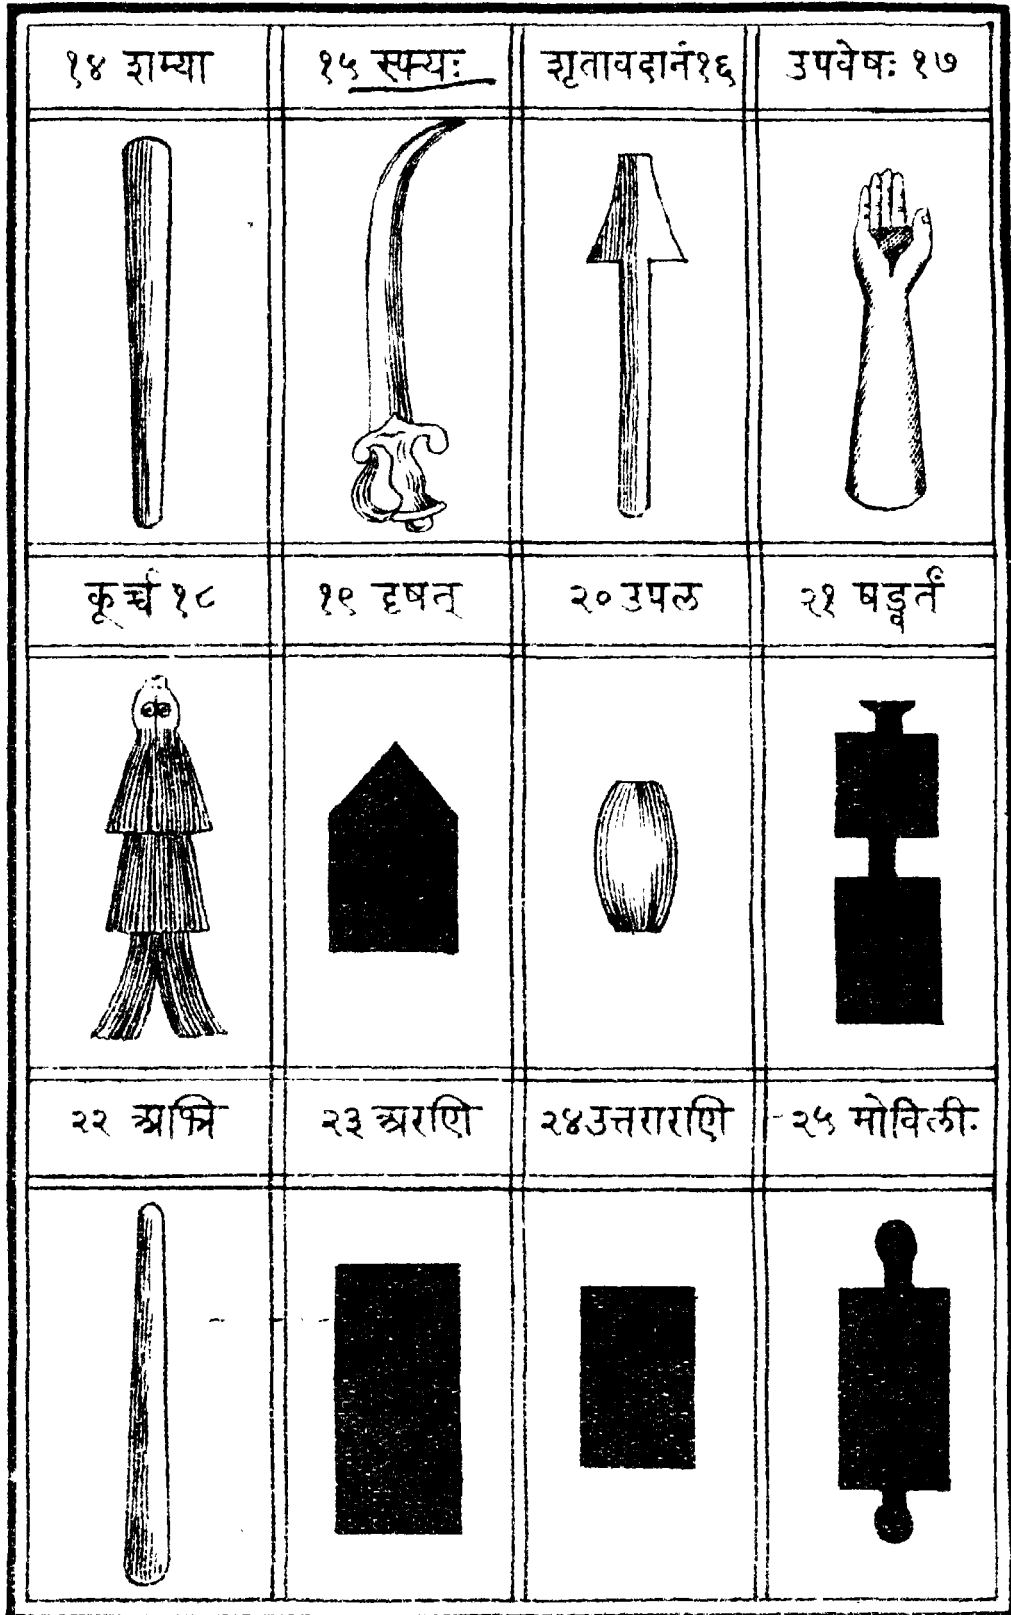 १४ शम्या
१५ स्फ्यः
शृतावदानं१६
उपवेषः १७
कूर्च्च १८
१९ दृषत्
२० उपल
२१ षड्वर्तं
२२ अभ्रि
२३ अरणि
२४ उत्तरारणि
२५ मोविली